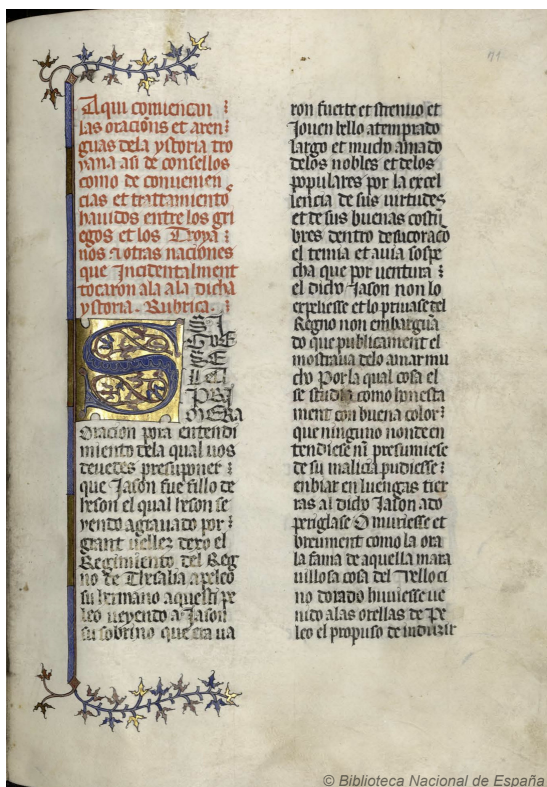 71
Aqui comiençan
las oracions et aren
guas dela ystoria tro
yana asi de consellos
como de conuenien
cias et trattamiento
hauidos entre los gri
egos et los Troya
nos & otras naciones
que Incidentalment
tocaron ala ala dicha
ystoria. Rubrica.
SI
GUE
SE
LA
PRI
MERA
Oracion pora entendi
miento dela qual uos
deuedes presuponer
que Jason fue fillo de
heson el qual heson se
yendo agrauado por
grant uellez dexo el
Regimiento del Reg
no de Thesalia a peleo
su hermano aquesti pe
leo ueyendo a Jason
su sobrino que era ua
ron fuerte et strenuo et
Jouen bello atemprado
largo et mucho amado
delos nobles et delos
populares por la excel
lencia de sus uirtudes
et de sus buenas costu
bres dentro de su coraço
el temia et auia sospe
cha que por uentura
el dicho Jason non lo
expeliesse et lo priuase del
Regno non embargua
do que publicament el
mostraua delo amar mu
cho Por la qual cosa el
se studia como honesta
ment con buena color
que ninguno nonde en
tendiese ni presumiese
de su malicia pudiesse
enbiar en luengas tier
ras al dicho Jason ado
periglase O muriesse et
breument como la ora
la fama de aquella mara
uillosa cosa del Velloci
no dorado huuiesse ue
nido alas orellas de Pe
leo el propuso de induzir
© Biblioteca Nacional de España